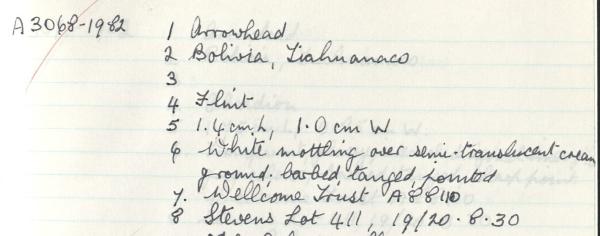 A3068-1982 1 Arrowhead
2 Bolivia, Tiahuanaco
3
4 Flint
5 1.4cm L, 1.0 cm W
6 White mottling over semi-translucent cream
ground. barbed tanged, pointed
7. Wellcome Trust A88110
8 Stevens Lot 411, 19/20.8.30